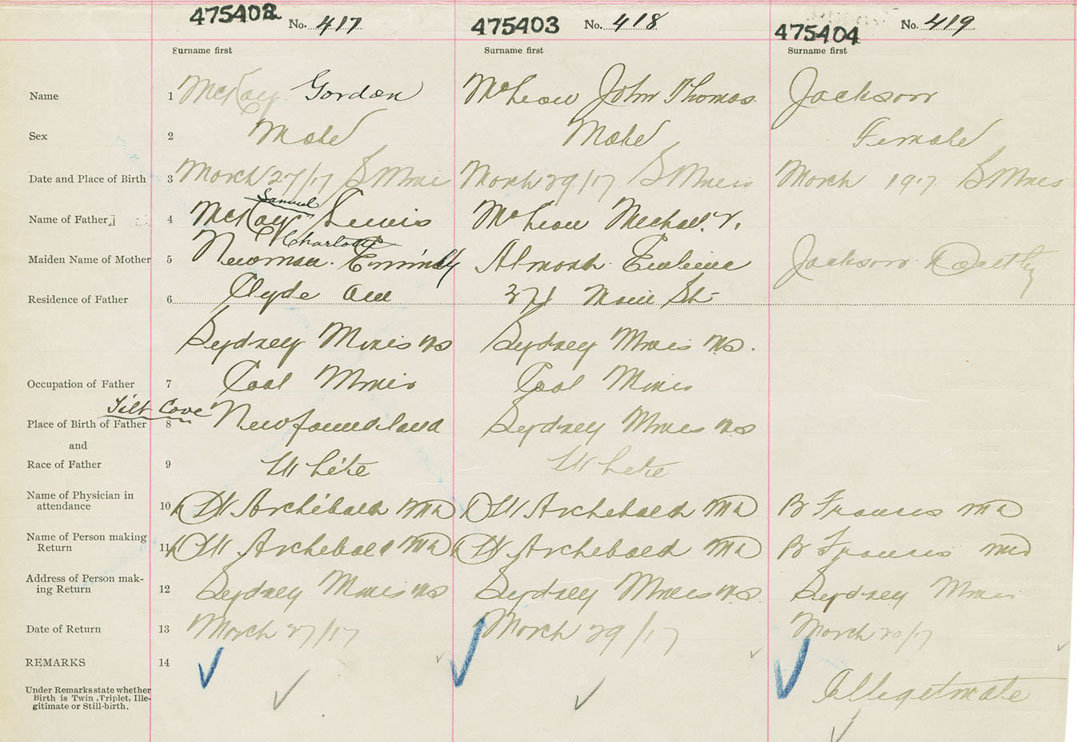 475402 No. 417 475403 No. 418 475404 No. 419
Surname first Surname first Surname first
Name 1 McKay Gordon McLean John Thomas Jackson
Sex 2 Male Male Female
Date and Place of Birth 3 March 27/17 S Mines March 29/17 S Mines March 1917 S Mines
Samuel
Name of Father 4 McKay Lewis McLean Michael
Charlotte
Maiden Name of Mother 5 Newman Jackson
Residence of Father 6 Clyde Ave Main St
Sydney Mines NS Sydney Mines NS.
Occupation of Father 7 Coal Miner Coal Miner
Tilt Cove
Place of Birth of Father 8 Newfoundland Sydney Mines NS
and
Race of Father 9 White White
Name of Physician in
attendance 10 Archibald MD Archibald MD B Francis MD
Name of Person making
Return 11 Archibald MD Archibald MD B Francis MD
Address of Person mak-
ing Return 12 Sydney Mines NS Sydney Mines NS Sydney Mines
Date of Return 13 March 27/17 March 29/17 March 20/17
REMARKS 14
Under Remarks state whether
Birth is Twin, Triplet, Ille-
gitimate or Still-birth.
Illegetmate